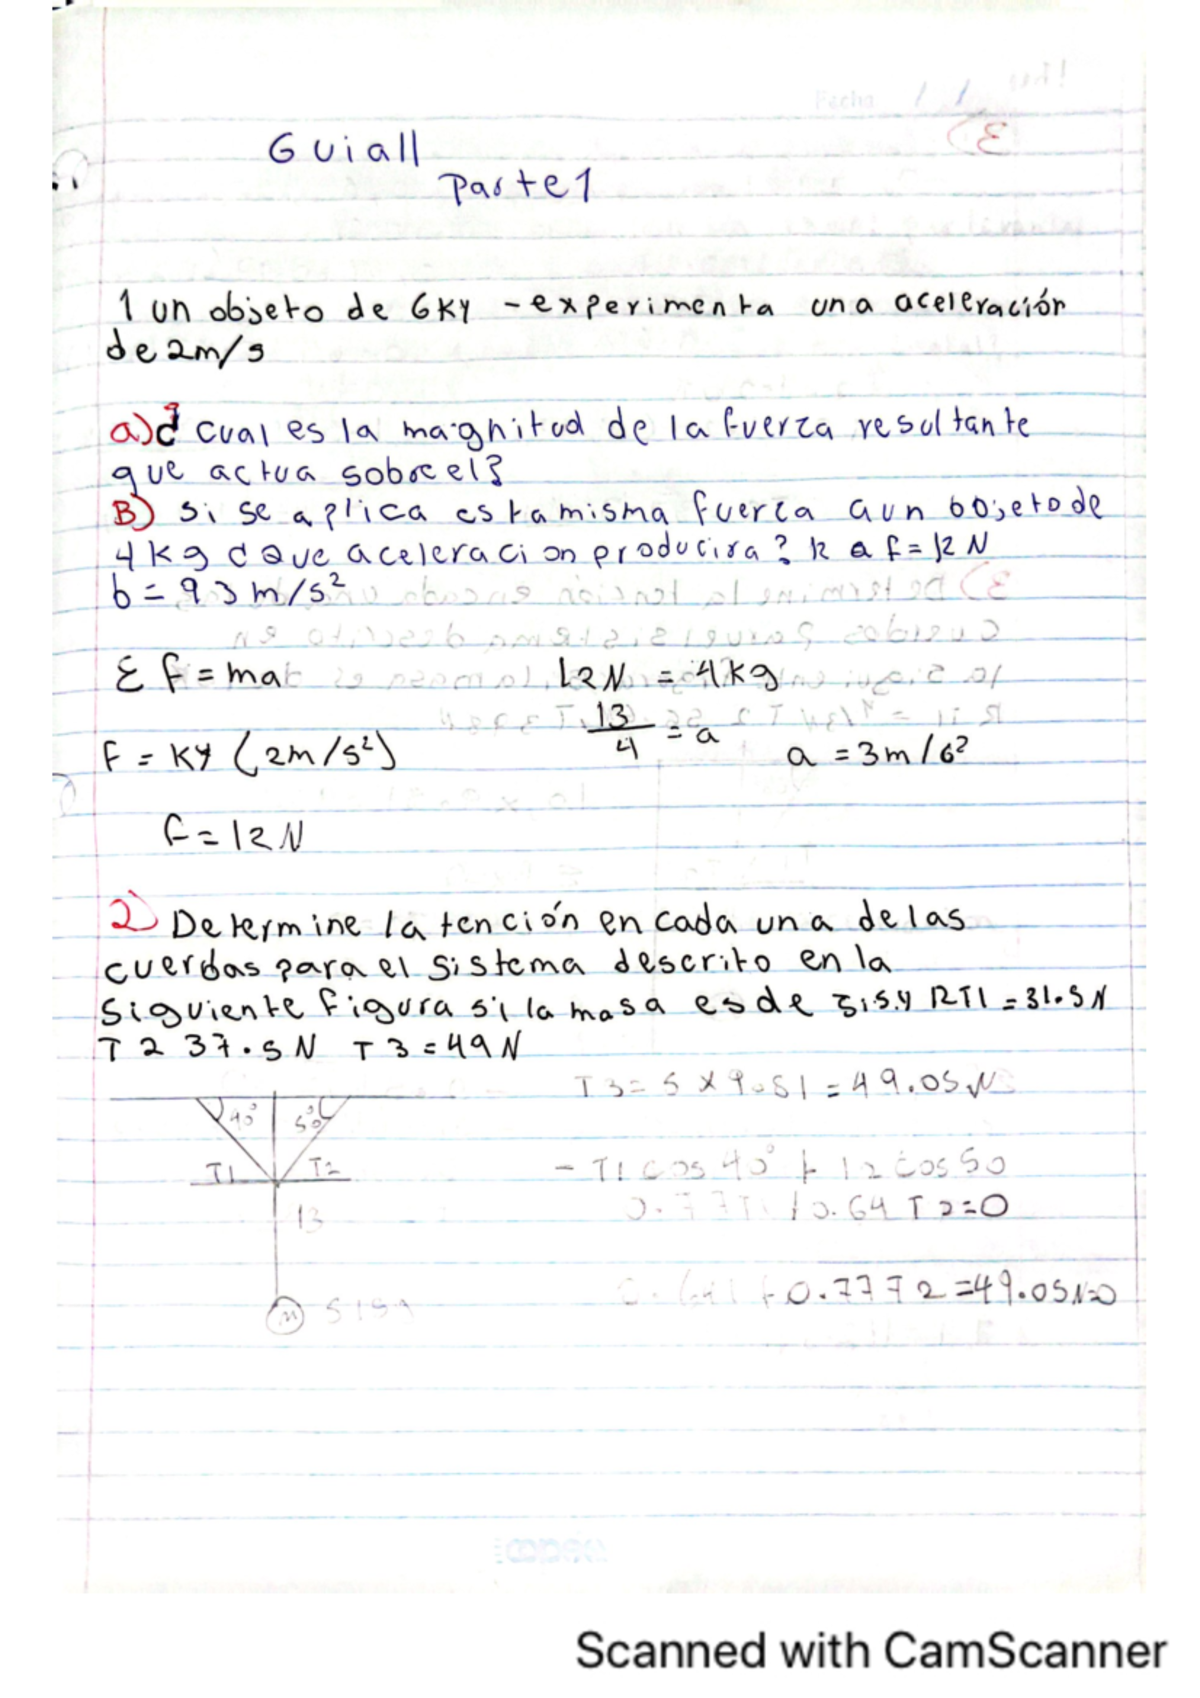 Guiall
Parte1
1 un objeto de 6Ky - experimenta una aceleración
de 2m/s
a) cual es la magnitud de la fuerza resultante
que actua sobre el?
B) si se aplica esta misma fuerza aun objeto de
4kg que aceleracion producira? R a f=12N
b = 9.3 m/s²
Ɛ f = ma
12N = 4kg
13/4 = a
a = 3m/6²
F = Ky (2m/s²)
f=12N
2) Determine la tención en cada una de las
cuerdas para el sistema descrito en la
siguiente figura si la masa es de RT1 = 31.5N
T2 37.5N T3=49N
T3= 5 x 9.81 = 49.05N
40° 50°
T1 T2
- T1 cos 40° + 12 cos 50
0.77T1 / 0.64 T2=0
13
+ 0.7772 =49.05N=0
m
Scanned with CamScanner